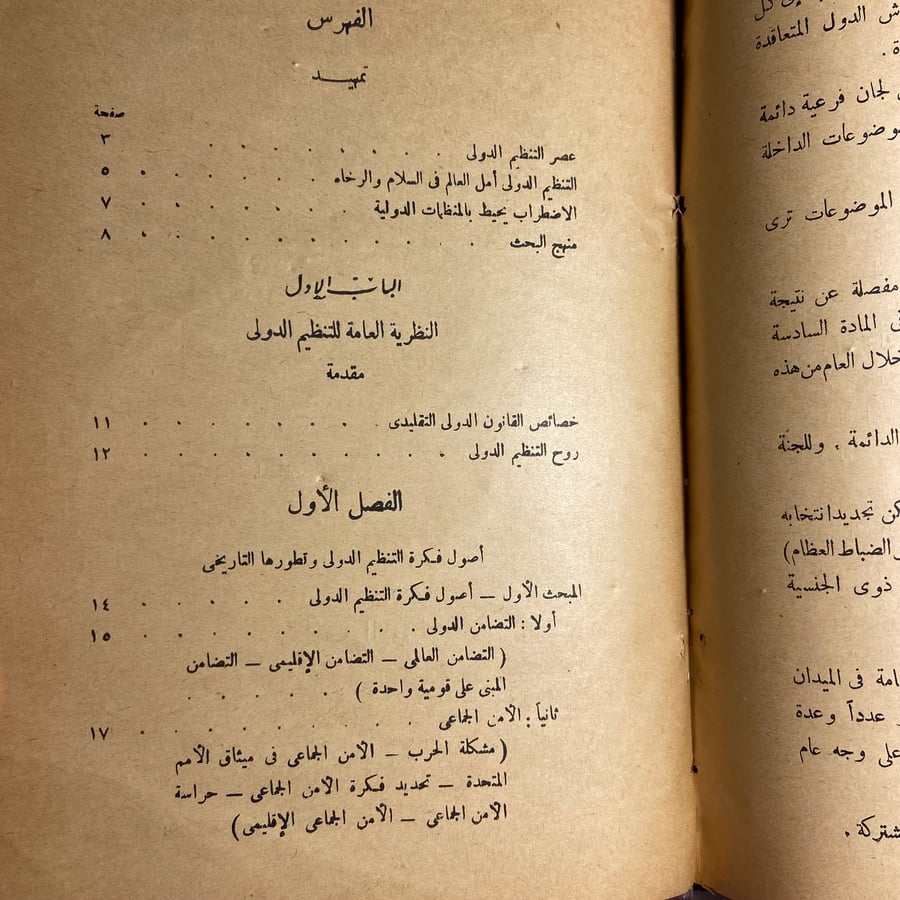 الفهرس
تمهيد
صفحة
عصر التنظيم الدولى . . . . . . . . . ٣
التنظيم الدولى أمل العالم فى السلام والرخاء . . . . . . ٥
الاضطراب يحيط بالمنظمات الدولية . . . . . . . ٧
منهج البحث . . . . . . . . . . ٨
الباب الأول
النظرية العامة للتنظيم الدولى
مقدمة
خصائص القانون الدولى التقليدى . . . . . . . ١١
روح التنظيم الدولى . . . . . . . . . ١٢
الفصل الأول
أصول فكرة التنظيم الدولى وتطورها التاريخى
المبحث الأول — أصول فكرة التنظيم الدولى . . . . . ١٤
أولا : التضامن الدولى . . . . . . . . . ١٥
( التضامن العالمى — التضامن الإقليمى — التضامن
المبنى على قومية واحدة ) . . . . .
ثانياً : الأمن الجماعى . . . . . . . . . ١٧
( مشكلة الحرب — الأمن الجماعى فى ميثاق الأمم
المتحدة — تحديد فكرة الأمن الجماعى — حراسة
الأمن الجماعى — الأمن الجماعى الإقليمى )
الدول المتعاقدة
لجان فرعية دائمة
الداخلة
الموضوعات ترى
مفصلة عن نتيجة
المادة السادسة
خلال العام من هذه
الدائمة . وللجنة
تجديد انتخابه
الضباط العظام )
ذوى الجنسية
فى الميدان
عدداً وعدة
على وجه عام